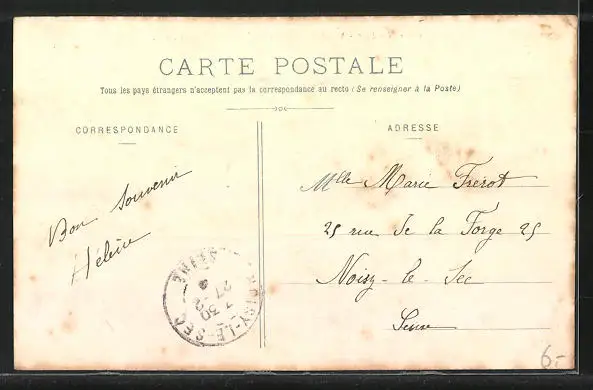 CARTE POSTALE
Tous les pays étrangers n'acceptent pas la correspondance au recto (Se renseigner à la Poste)
CORRESPONDANCE
ADRESSE
Bon Souvenir
Hélène
Mlle Marie Frérot
25 rue de la Forge 25
Noisy-le-Sec
Seine
NOISY-LE-SEC
SEINE
7 30
27
6.-